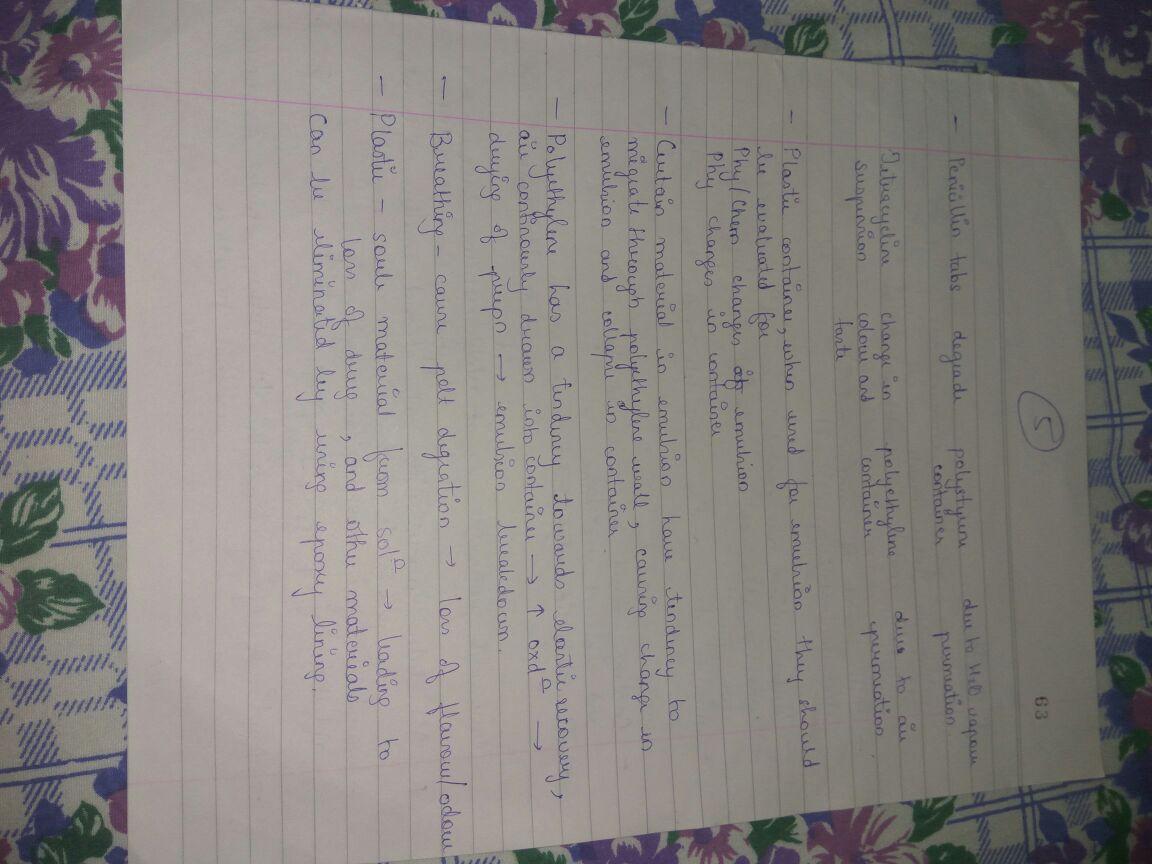 63
5
- Penicillin tabs degrade polystyrene due to H2O vapour
container permeation.
Tetracycline change in polyethylene due to air
suspension colour and container permeation.
taste
- Plastic container, when used for emulsion they should
be evaluated for
Phy/Chem changes of emulsion
Phy changes in container
- Certain material in emulsion have tendency to
migrate through polyethylene wall, causing change in
emulsion and collapse in container.
- Polyethylene has a tendency towards elastic recovery,
air continously drawn into container → ↑ oxdⁿ →
drying of preps → emulsion breakdown.
- Breathing - cause pdt degration → loss of flavour/odour
- Plastic - sorb material from solⁿ → leading to
loss of drug, and other materials
Can be eliminated by using epoxy lining.